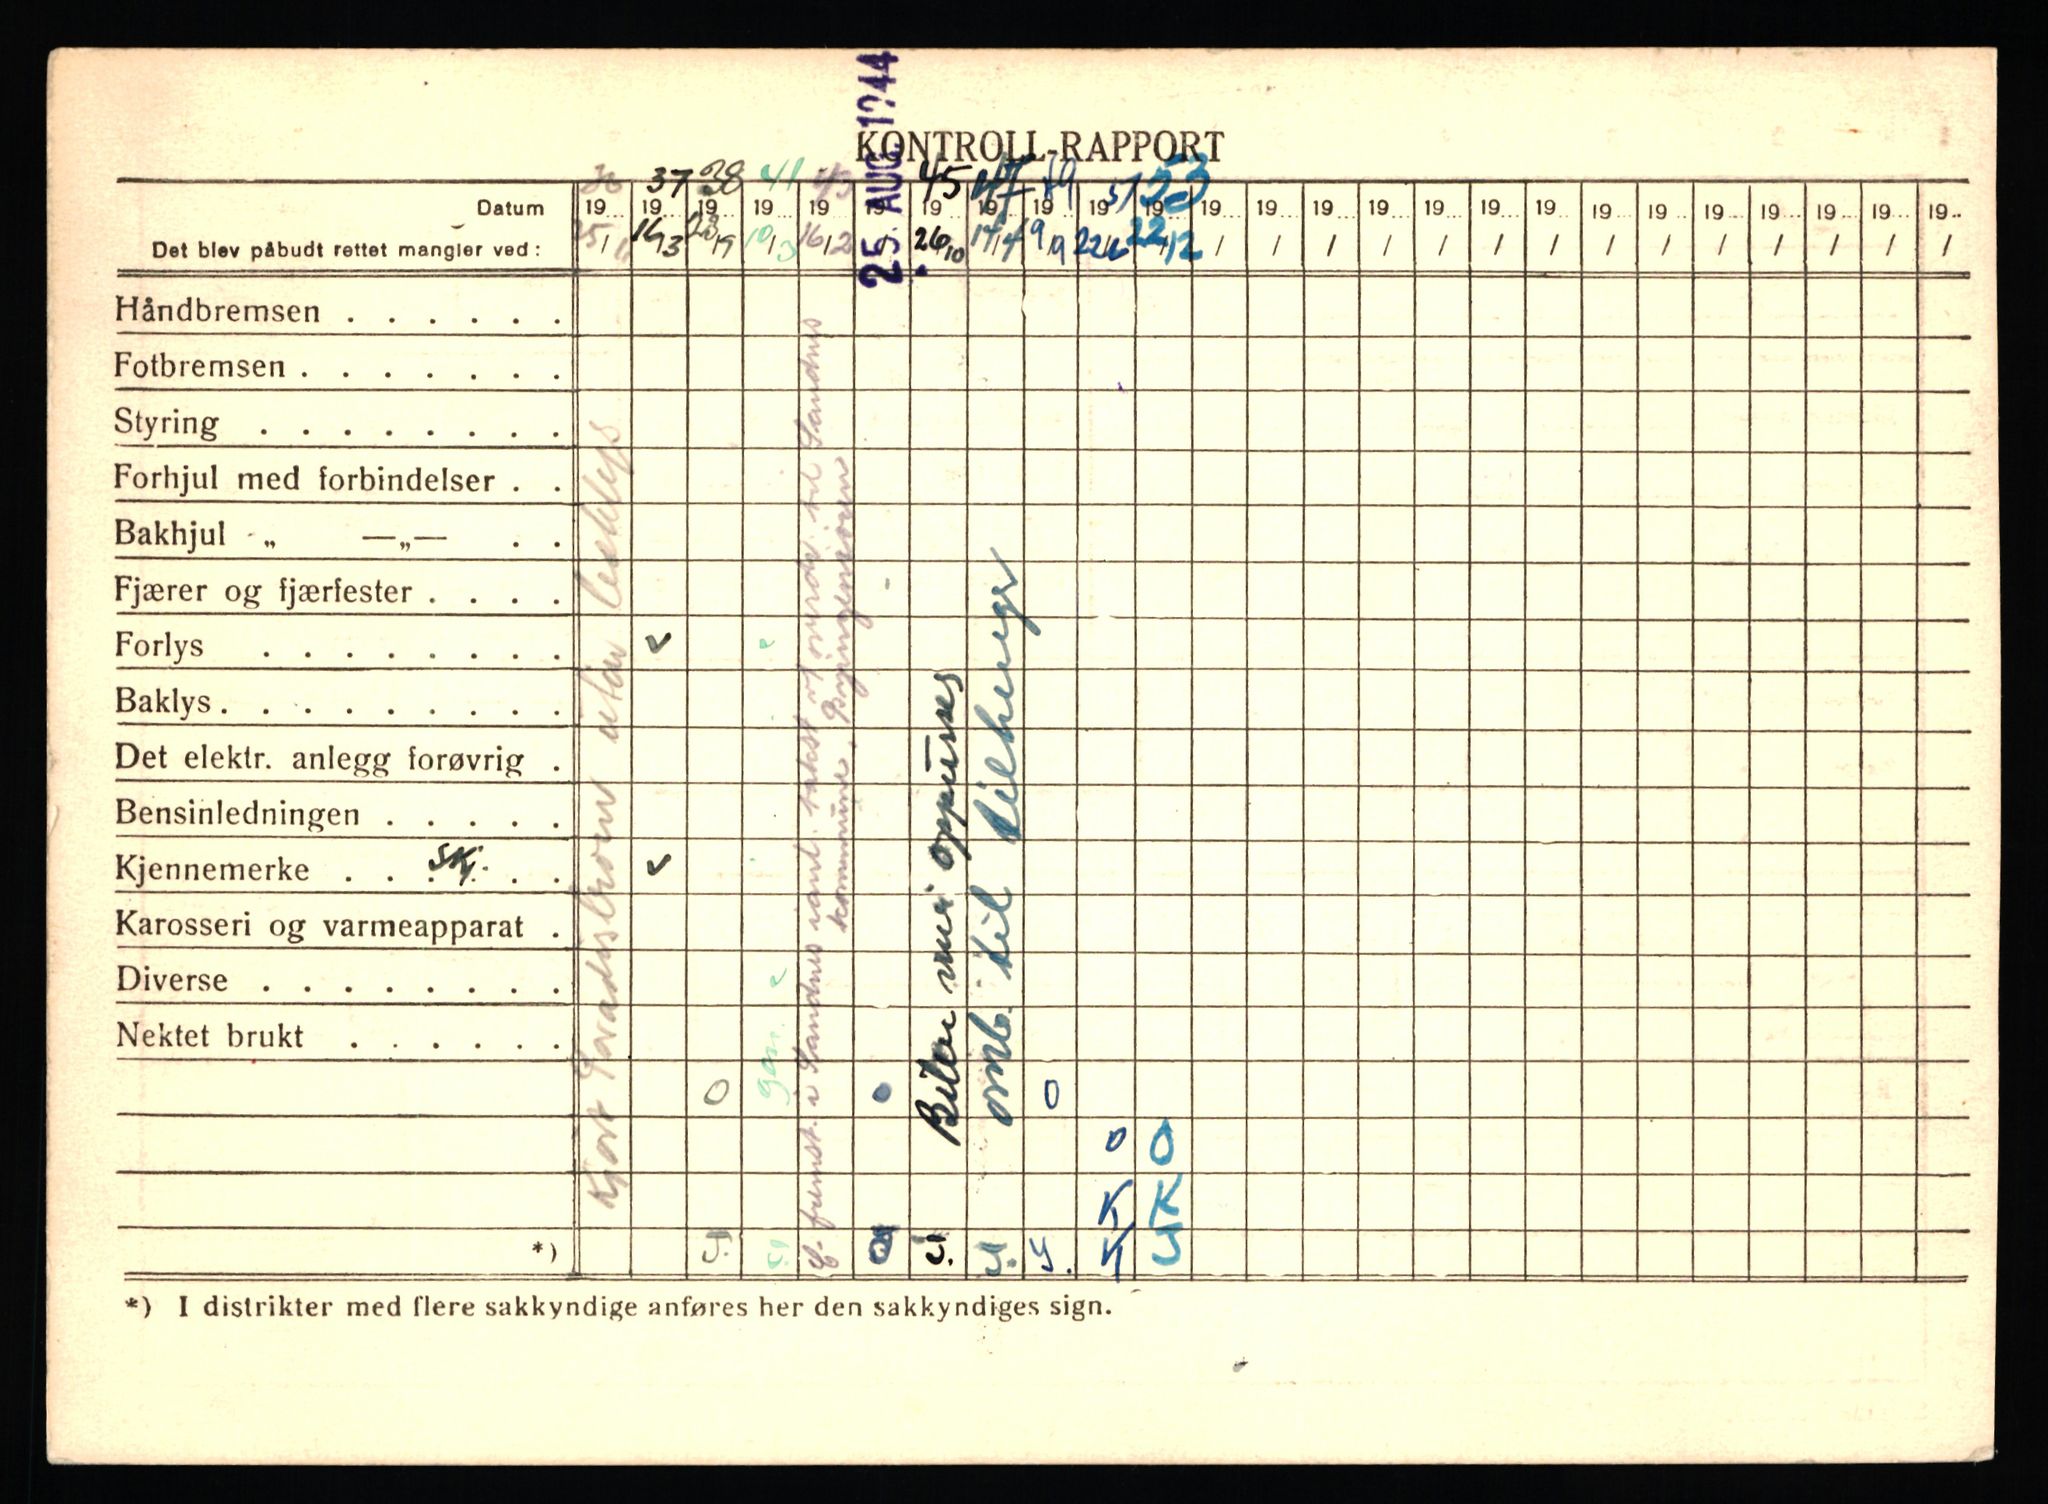 25. AUG. 1944
KONTROLL-RAPPORT
36 37 38 41 43 45 47 49 51 53
Datum 19 19 19 19 19 19 19 19 19 19 19 19 19 19 19 19 19 19 19 19 19 19 19 19 19
Det blev påbudt rettet mangler ved: 25/11 16/3 28/9 10/3 16/2 26/10 17/4 9/9 22/6 22/12 / / / / / / / / / / / / / /
Håndbremsen . . . . . .
Fotbremsen . . . . . . .
Styring . . . . . . . .
Forhjul med forbindelser . .
Bakhjul „ —„— . .
Fjærer og fjærfester . . . .
Forlys . . . . . . . .
Baklys . . . . . . . . .
Det elektr. anlegg forøvrig .
Bensinledningen . . . . .
Kjennemerke . . . . . .
Karosseri og varmeapparat .
Diverse . . . . . . . .
Nektet brukt . . . . . .
Kjørt utan
i Sandnes takst til Sandnes
kommune. Bygingeniøren
Bilen
omb. til
O O
O O
K K
*)
*) I distrikter med flere sakkyndige anføres her den sakkyndiges sign.